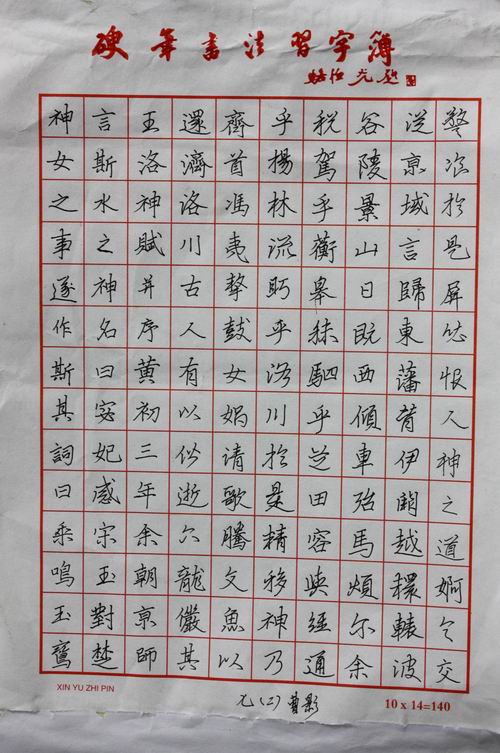 硬筆書法習字簿
駱恆光題
警於是屏恨人神之道婀交
從京域言歸東藩背伊闕越轘轅波
谷陵景山日既西傾車殆馬煩尔余
税駕乎蘅皋秣駟乎芝田容與經通
乎楊林流眄乎洛川於是精移神乃
齊首馮夷擊鼓女媧清歌騰文魚以
還濟洛川古人有以似逝六龍儼其
王洛神賦并序黃初三年余朝京師
言斯水之神名曰宓妃感宋玉對楚
神女之事遂作斯其詞曰乘鳴玉鸞
XIN YU ZHI PIN
九(二)曹影
10 x 14=140